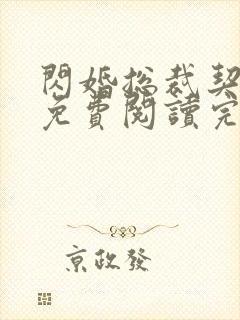 閃婚總裁契
免費閱讀完
京政發